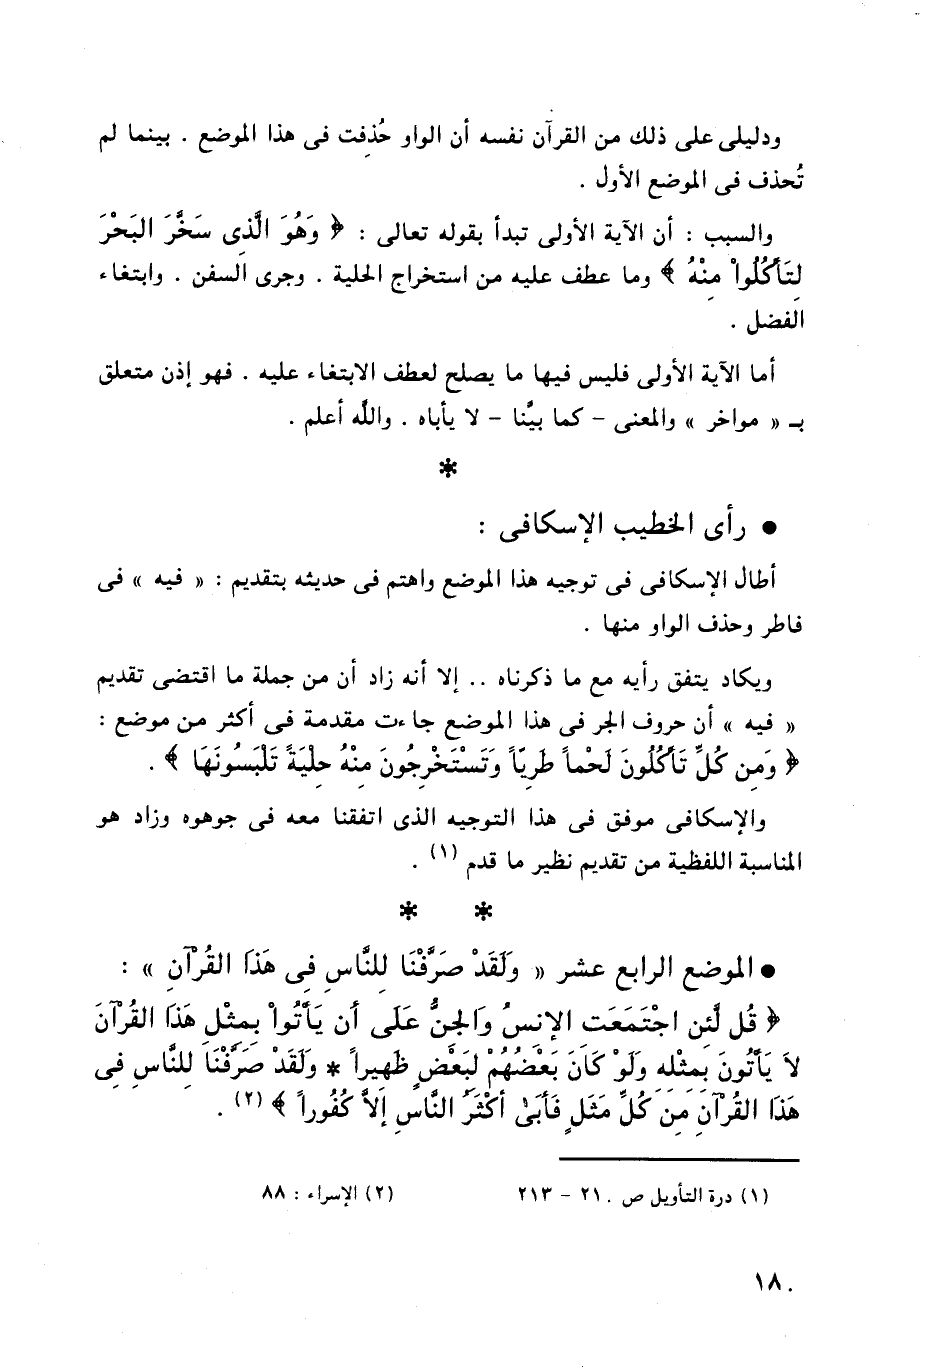 ودليلى على ذلك من القرآن نفسه أن الواو حُذِفت فى هذا الموضع . بينما لم
تُحذف فى الموضع الأول .
والسبب : أن الآية الأولى تبدأ بقوله تعالى : ﴿ وَهُوَ الَّذِى سَخَّرَ البَحْرَ
لِتَأكُلُواْ مِنْهُ ﴾ وما عطف عليه من استخراج الحلية . وجرى السفن . وابتغاء
الفضل .
أما الآية الأولى فليس فيها ما يصلح لعطف الابتغاء عليه . فهو إذن متعلق
بـ « مواخر » والمعنى – كما بيَّنا – لا يأباه . والله أعلم .
*
● رأى الخطيب الإسكافى :
أطال الإسكافى فى توجيه هذا الموضع واهتم فى حديثه بتقديم : « فيه » فى
فاطر وحذف الواو منها .
ويكاد يتفق رأيه مع ما ذكرناه .. إلا أنه زاد أن من جملة ما اقتضى تقديم
« فيه » أن حروف الجر فى هذا الموضع جاءت مقدمة فى أكثر من موضع :
﴿ وَمِن كُلٍّ تَأكُلُونَ لَحْماً طَرِيّاً وَتَسْتَخْرِجُونَ مِنْهُ حِلْيَةً تَلْبَسُونَهَا ﴾ .
والإسكافى موفق فى هذا التوجيه الذى اتفقنا معه فى جوهره وزاد هو
المناسبة اللفظية من تقديم نظير ما قدم (١) .
* *
● الموضع الرابع عشر « وَلَقَدْ صَرَّفْنَا لِلنَّاسِ فِى هَذَا القُرْآنِ » :
﴿ قُل لَّئِنِ اجْتَمَعَتِ الإِنسُ وَالجِنُّ عَلَى أَن يَأتُواْ بِمِثْلِ هَذَا القُرْآنَ
لاَ يَأتُونَ بِمِثْلِهِ وَلَوْ كَانَ بَعْضُهُمْ لِبَعْضٍ ظَهِيراً * وَلَقَدْ صَرَّفْنَا لِلنَّاسِ فِى
هَذَا القُرْآنِ مِن كُلِّ مَثَلٍ فَأَبَىٰ أَكْثَرُ النَّاسِ إِلاَّ كُفُوراً ﴾ (٢) .
(١) درة التأويل ص ٢١٠ – ٢١٣
(٢) الإسراء : ٨٨
١٨٠